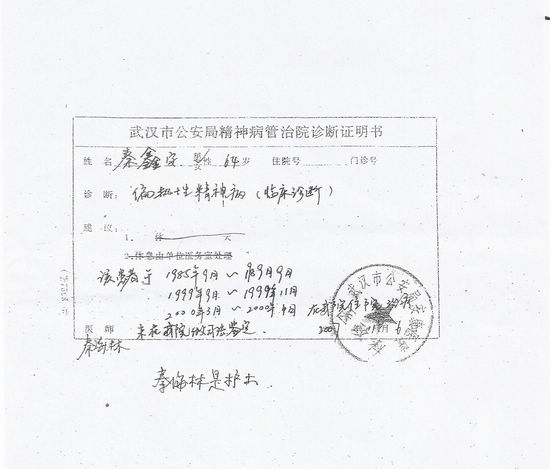 武汉市公安局精神病管治院诊断证明书
姓名 秦鑫安 男/女 性 64岁 住院号 门诊号
诊断: 偏执性精神病(临床诊断)
建议:
1、 休 天
2、休息由单位医务室处理
该患者于 1985年9月~89年9月
1999年9月~1999年11月
2000年3月~2000年 月 在我院住院治疗
未在我院做司法鉴定.
医师
2007 月 6
武汉市公安局安康
秦 林
秦 林是护士.